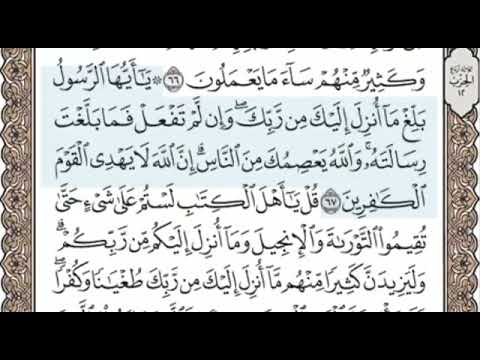 وَكَثِيرٌ مِّنْهُمْ سَآءَ مَا يَعْمَلُونَ ٦٦ ۞ يَٰٓأَيُّهَا ٱلرَّسُولُ
بَلِّغْ مَآ أُنزِلَ إِلَيْكَ مِن رَّبِّكَ ۖ وَإِن لَّمْ تَفْعَلْ فَمَا بَلَّغْتَ
رِسَالَتَهُۥ ۚ وَٱللَّهُ يَعْصِمُكَ مِنَ ٱلنَّاسِ ۗ إِنَّ ٱللَّهَ لَا يَهْدِى ٱلْقَوْمَ
ٱلْكَٰفِرِينَ ٦٧ قُلْ يَٰٓأَهْلَ ٱلْكِتَٰبِ لَسْتُمْ عَلَىٰ شَىْءٍ حَتَّىٰ
تُقِيمُوا۟ ٱلتَّوْرَىٰةَ وَٱلْإِنجِيلَ وَمَآ أُنزِلَ إِلَيْكُم مِّن رَّبِّكُمْ ۗ
وَلَيَزِيدَنَّ كَثِيرًا مِّنْهُم مَّآ أُنزِلَ إِلَيْكَ مِن رَّبِّكَ طُغْيَٰنًا وَكُفْرًا ۖ
الحزب
١٢